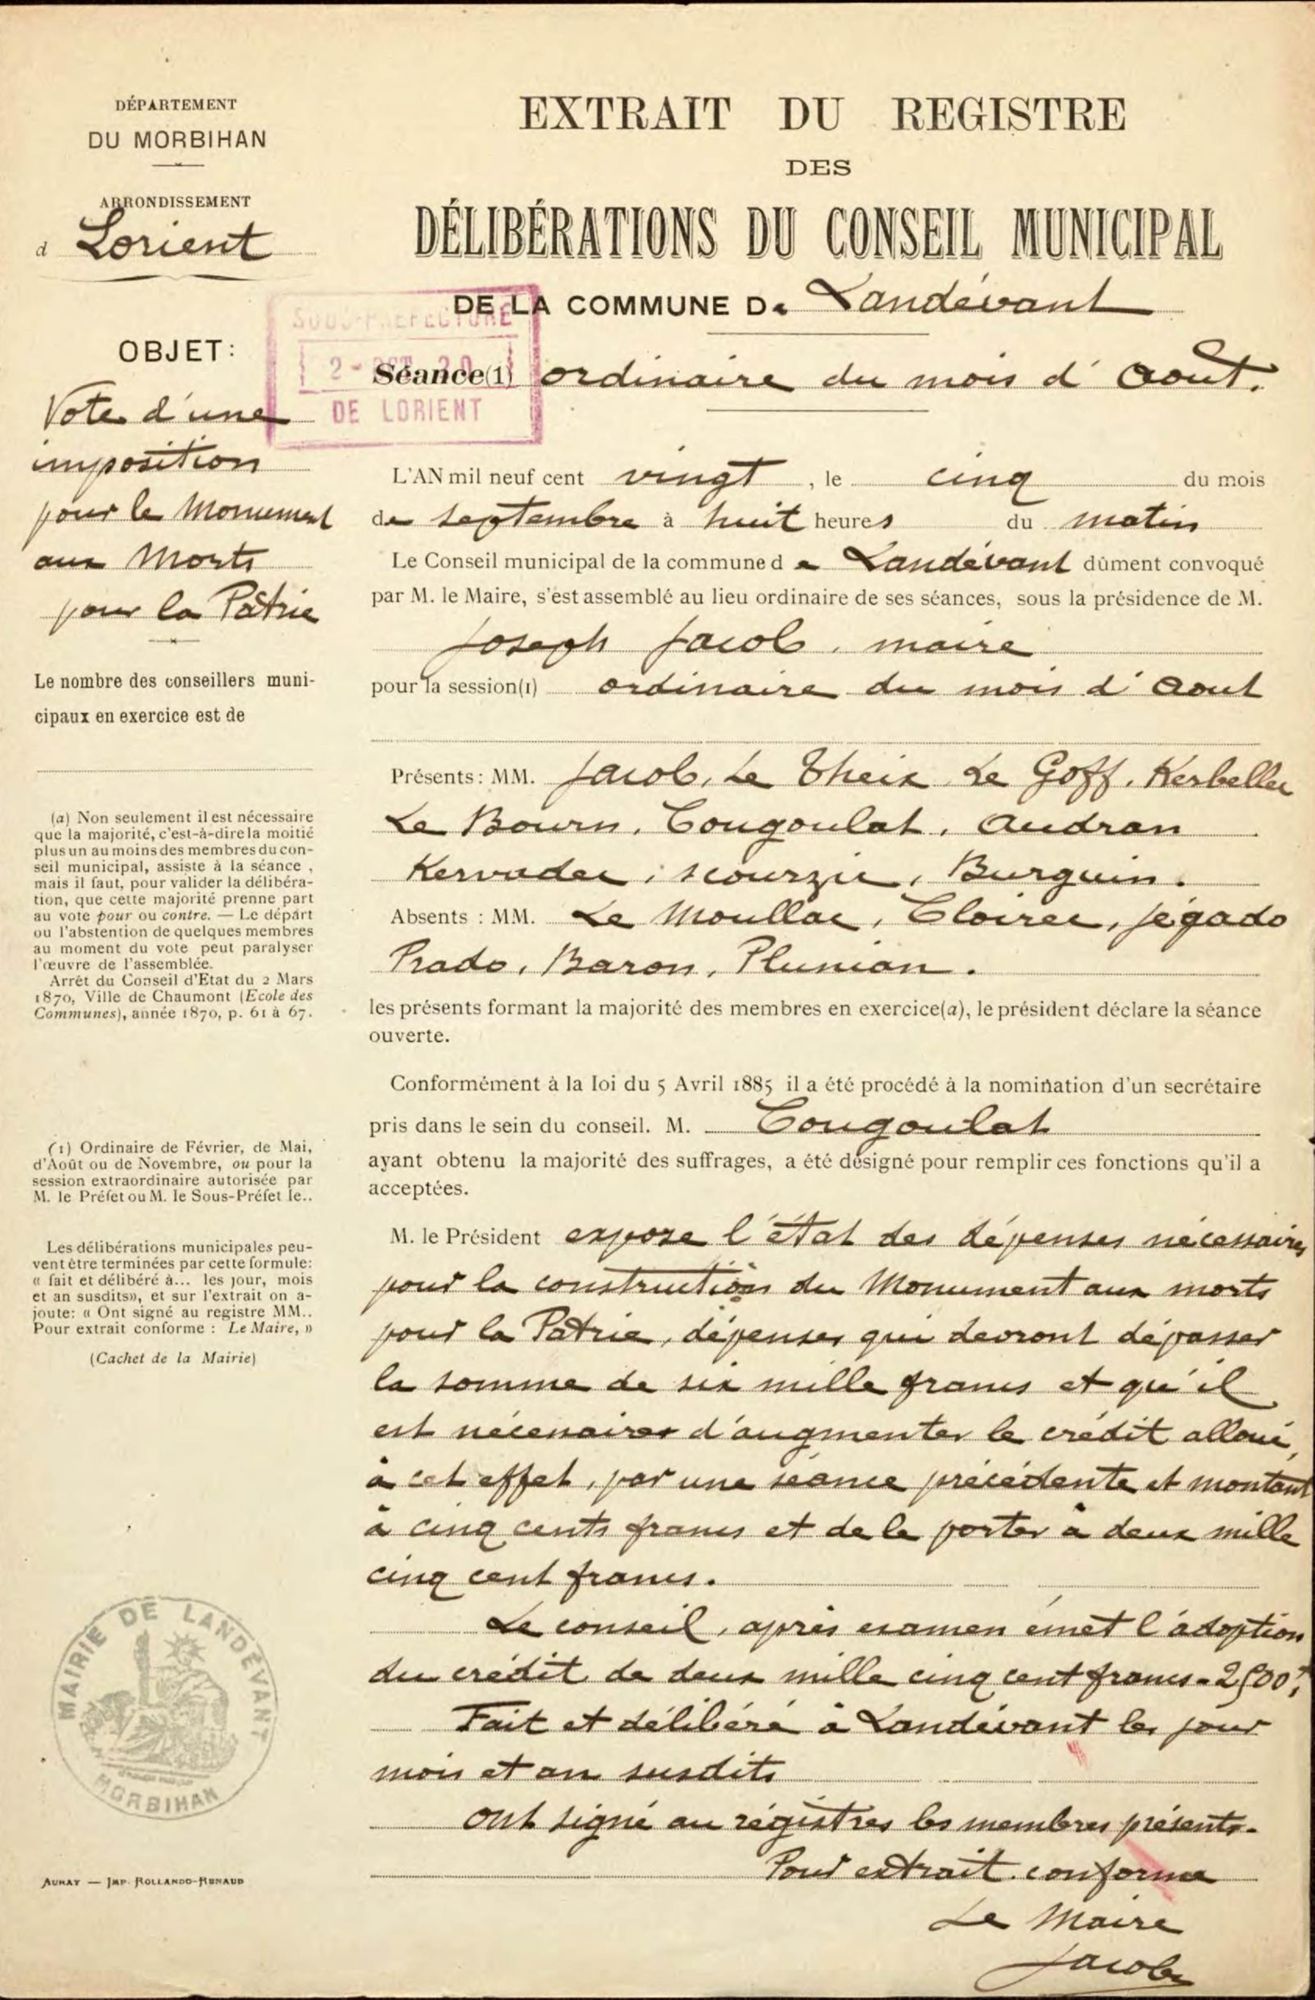 DÉPARTEMENT
DU MORBIHAN
ARRONDISSEMENT
d Lorient
OBJET:
Vote d'une
imposition
pour le Monument
aux Morts
pour la Patrie
Le nombre des conseillers muni-
cipaux en exercice est de
(a) Non seulement il est nécessaire
que la majorité, c'est-à-dire la moitié
plus un au moins des membres du con-
seil municipal, assiste à la séance,
mais il faut, pour valider la délibéra-
tion, que cette majorité prenne part
au vote pour ou contre. — Le départ
ou l'abstention de quelques membres
au moment du vote peut paralyser
l'œuvre de l'assemblée.
Arrêt du Conseil d'Etat du 2 Mars
1870, Ville de Chaumont (Ecole des
Communes), année 1870, p. 61 à 67.
(1) Ordinaire de Février, de Mai,
d'Août ou de Novembre, ou pour la
session extraordinaire autorisée par
M. le Préfet ou M. le Sous-Préfet le..
Les délibérations municipales peu-
vent être terminées par cette formule:
« fait et délibéré à... les jour, mois
et an susdits», et sur l'extrait on a-
joute: « Ont signé au registre MM..
Pour extrait conforme : Le Maire, »
(Cachet de la Mairie)
MAIRIE DE LANDÉVANT
MORBIHAN
AURAY — IMP. ROLLANDO-RUNAUD
EXTRAIT DU REGISTRE
DES
DÉLIBÉRATIONS DU CONSEIL MUNICIPAL
DE LA COMMUNE De Landévant
SOUS-PRÉFECTURE
2 - OCT 20
DE LORIENT
Séance(1) ordinaire du mois d'Aout.
L'AN mil neuf cent vingt, le cinq du mois
de septembre à huit heures du matin
Le Conseil municipal de la commune de Landévant dûment convoqué
par M. le Maire, s'est assemblé au lieu ordinaire de ses séances, sous la présidence de M.
Joseph Jacob, maire
pour la session(1) ordinaire du mois d'Aout
Présents: MM. Jacob, Le Theix Le Goff, Kerbellec
Le Bourn, Cougoulat, Audran
Kervadec, Scourzic, Burguin.
Absents : MM. Le Moullac, Cloirec, Jégado
Prado, Baron, Plunian.
les présents formant la majorité des membres en exercice(a), le président déclare la séance
ouverte.
Conformément à la loi du 5 Avril 1885 il a été procédé à la nomination d'un secrétaire
pris dans le sein du conseil. M. Cougoulat
ayant obtenu la majorité des suffrages, a été désigné pour remplir ces fonctions qu'il a
acceptées.
M. le Président expose l'état des dépenses nécessaires
pour la construction du Monument aux morts
pour la Patrie, dépenses qui devront dépasser
la somme de six mille francs et qu'il
est nécessaires d'augmenter le crédit alloué,
à cet effet, par une séance précédente et montant
à cinq cents francs et de le porter à deux mille
cinq cent francs.
Le conseil, après examen émet l'adoption
du crédit de deux mille cinq cent francs - 2500f.
Fait et délibéré à Landévant les jour
mois et an susdits
Ont signé au régistres les membres présents.
Pour extrait conforme
Le Maire
Jacob